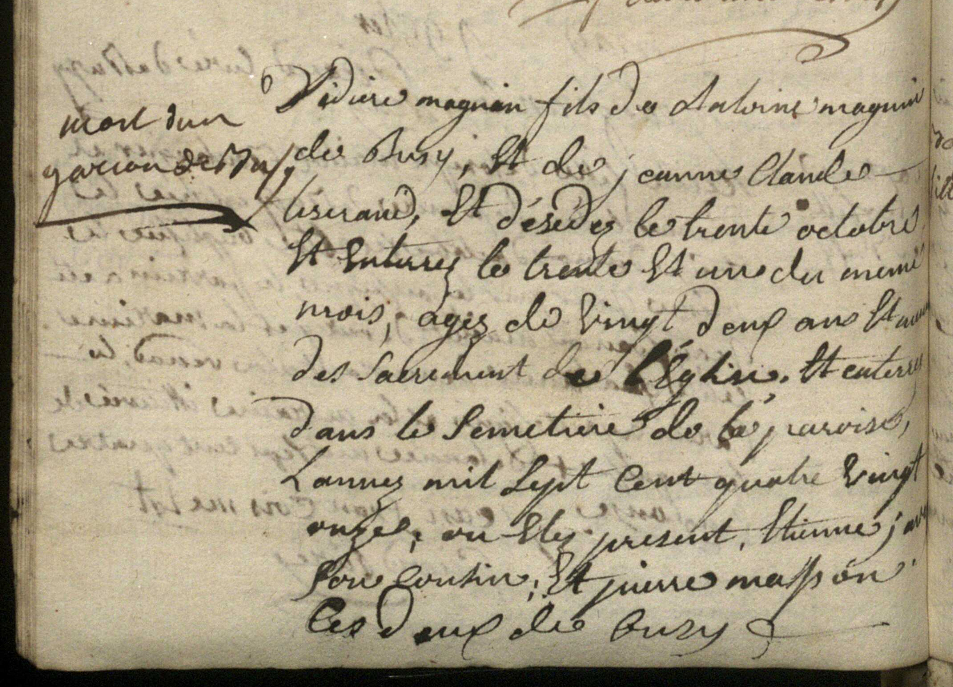 mort dun
garcon de Busy
Didiere magnin fils de Antoine magnin
de Busy, Et de jeanne Claude
tiserand, Et désédez le trente octobre
Et Enterrez le trente Et un du meme
mois, agez de Vingt deux ans Et muni
des Sacrement de l'Églize. Et enterrez
dans le Semetiere de la paroise,
Lannez mil Sept Cent quatre Vingt
onze, on Etez present, Etienne
Son Cousin, Et pierre masson
Ces deux de Busy